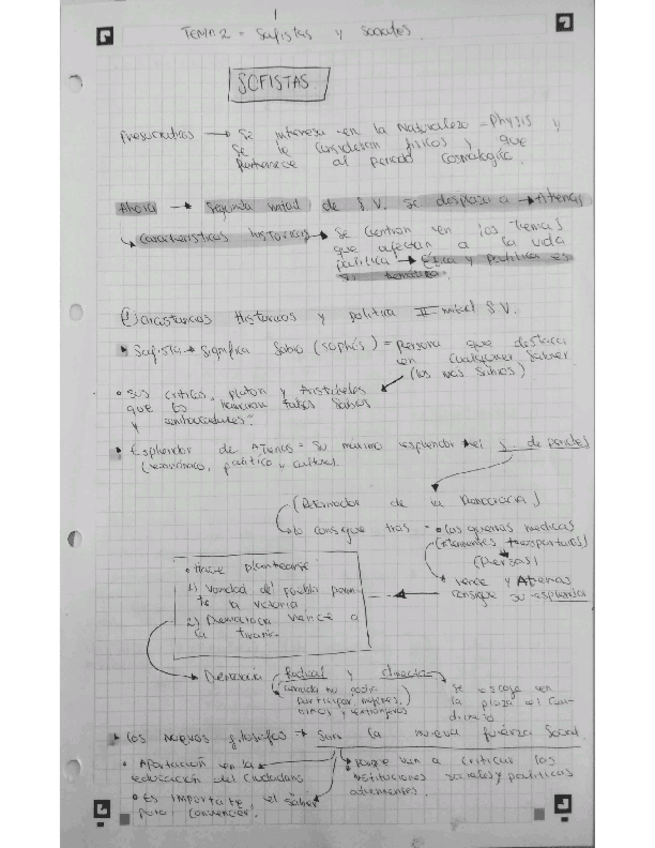 TEMA 2 = Sofistas y Socrates.
SOFISTAS
Presocraticos → Se interesa en la Naturaleza - Physis y
se le consideran fisicos y que
pertenece al periodo cosmologico.
Ahora → Segunda mitad de S.V. se desplaza a → Atenas
Caracteristicas historicas → Se centran en los temas
que afectan a la vida
politica → Etica y politica es
su
Circunstancias Historicas y politica II mitad S.V.
Sofista → Significa Sabio (sophós) = persona que destaca
en cualquier saber
(los mas sabios)
• Sus criticos, platon y Aristoteles
que los falsos sabios
y embaucadores.
Esplendor de Atenas = Su máximo esplendor de pericles
(económico, político y cultural.
(Reformador de la Democracia)
lo consigue tras = • las guerras medicas
(Atenienses espartanos)
(Persas)
vence y Atenas
consigue su esplendor
• Hace plantearse
1) Variedad del pueblo
te la victoria
2) Democracia vence a
la tirania.
Democracia Radical y directa
no podia
participar mujeres,
niños y extranjeros
se escoge en
la plaza el
Los nuevos filosofos → Son la nueva fuerza Social
• Aportación en la
educación del ciudadano
• porque van a criticar las
instituciones sociales y politicas
• Es importante el saber
para convencer.